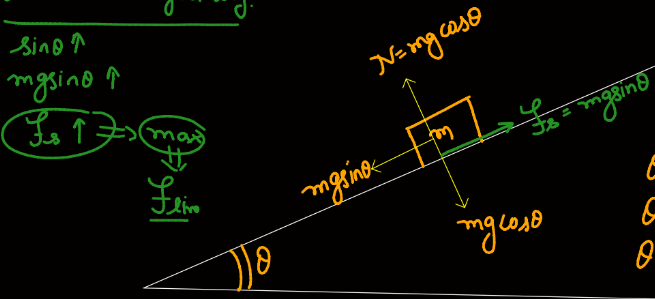 sinθ ↑
mgsinθ ↑
fs ↑ ⇒ max
⇓
flim
N=mgcosθ
m
fs = mgsinθ
mgsinθ
mgcosθ
θ
θ
θ
θ